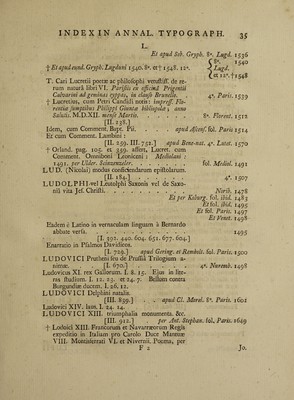 INDEX IN ANNAL. TYPOGRAPH. 35
L.
Et apud Seb. Gryph. 8º. Lugd. 1536
† Et apud eund. Gryph. Lugduni 1540. 8º. et † 1548. 12º. { 8º. Lugd. 1540 et 12º. † 1548
T. Cari Lucretii poetæ ac philosophi vetustiss. de re-
rum naturâ libri VI. Parisiis ex officinâ Prigentii
Calvarini ad geminas cyppas, in clauso Brunelle. 4º. Paris. 1539
† Lucretius, cum Petri Candidi notis: impress. Flo-
rentiæ sumptibus Philippi Giuntæ bibliopolæ; anno
Salutis. M.D.XII. mense Martio. . . . 8º. Florent. 1512
[II. 138.]
Idem, cum Comment. Bapt. Pii. apud Ascens. fol. Paris 1514
Et cum Comment. Lambini :
[II. 259. III. 752.] . apud Bene-nat. 4º. Lutet. 1570
† Orland. pag. 105. et 359. affert, Lucret. cum
Comment. Omniboni Leoniceni : Mediolani :
1491. per Ulder. Scinzenzeler. . . . fol. Mediol. 1491
LUD. (Nicolai) modus conficiendarum epistolarum.
[II. 184.] . . . . 4º. 1507
LUDOLPHI-vel Leutolphi Saxonis vel de Saxo-
niâ vita Jes. Christi. . . . . Norib. 1478
Et per Koburg. fol. ibid. 1483
Et fol. ibid. 1495
Et fol. Paris. 1497
Et Venet. 1498
Eadem è Latino in vernaculam linguam à Bernardo
abbate versa. . . . . 1495
[I. 591. 440. 604. 651. 677. 604.]
Enarratio in Psalmos Davidicos.
[I. 729.] . apud Gering. et Rembolt. fol. Paris. 1500
LUDOVICI Prutheni seu de Prussiâ Trilogium a-
nimæ. [I. 670.] . . . . 4º. Noremb. 1498
Ludovicus XI. rex Gallorum. I. 8. 15. Ejus in lite-
ras studium. I. 12. 23. et 24. 7. Bellum contra
Burgundiæ ducem. I. 26. 12.
LUDOVICI Delphini natalis.
[III. 859.] . . . apud Cl. Morel. 8º. Paris. 1601
Ludovici XIV. laus. I. 24. 14.
LUDOVICI XIII. triumphalia monumenta. &c.
[III. 912.] . . per Ant. Stephan. fol. Paris. 1649
† Lodoici XIII. Francorum et Navarræorum Regis
expeditio in Italiam pro Carolo Duce Mantuæ
VIII. Montisferrati VI. et Nivernii. Poema, per
F 2 Jo.